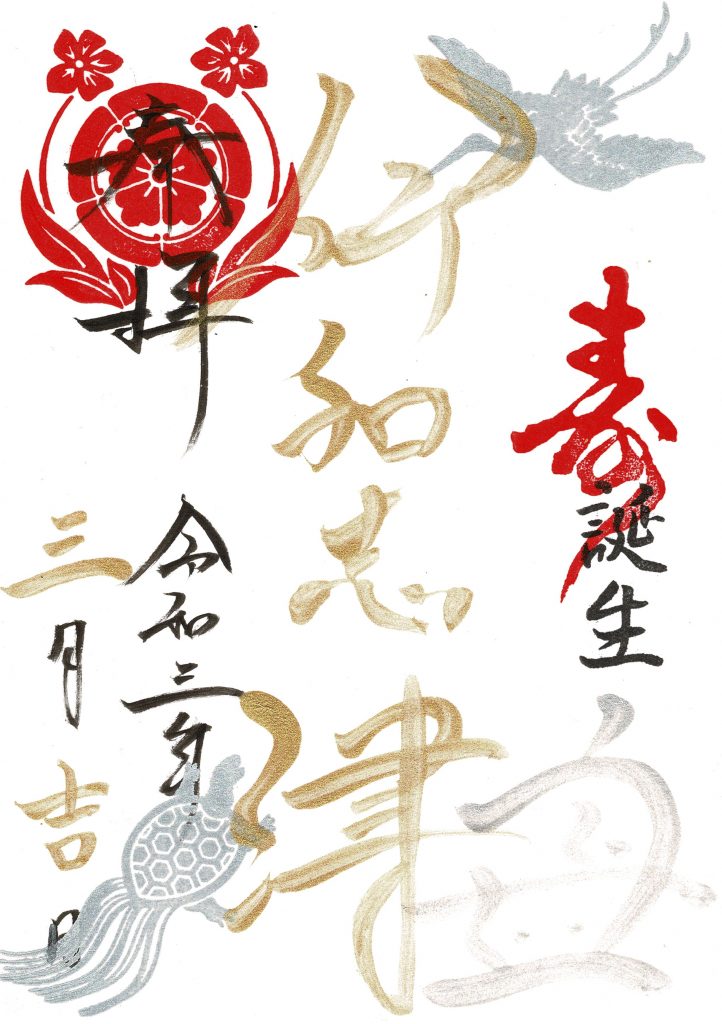 寿
誕生
伊和志津
奉拝
令和三年
三月吉日